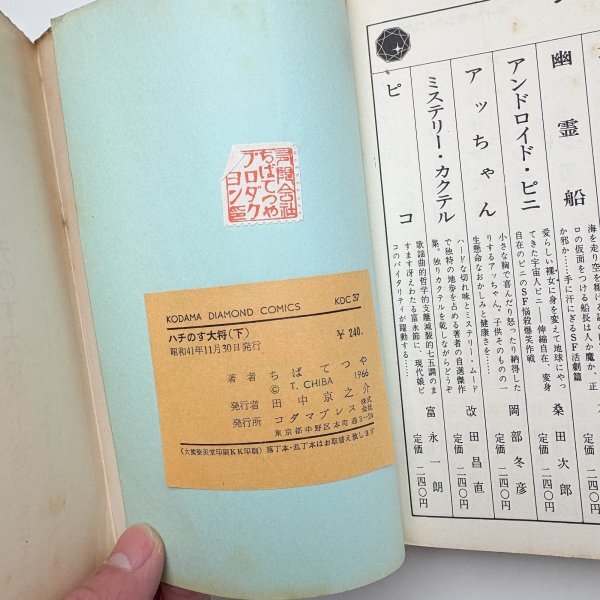 有限会社
ちばてつや
プロダク
ション
KODAMA DIAMOND COMICS KDC 37
ハチのす大将(下)
¥ 240.
昭和41年11月30日発行
著者 ちばてつや
© T. CHIBA 1966
発行者 田中京之介
発行所 コダマプレス株式会社
東京都中野区本町通3−24
落丁本・乱丁本はお取替え致します
幽霊船
ロの仮面をつける船長は人か魔か、正
か邪か……手に汗にぎるSF活劇篇
桑田次郎
定価 二四〇円
アンドロイド・ピニ
愛らしい裸女に身を変えて地球にやっ
てきた宇宙人ピニ――伸縮自在、変身
自在のピニのSF悩殺爆笑作戦
岡部冬彦
定価 二四〇円
アッちゃん
小さな胸で喜んだり怒ったり納得した
りするアッちゃん。子供そのものの一
生懸命なおかしみと健康さを……
改田昌直
定価 二四〇円
ミステリー・カクテル
ハードな切れ味とミステリー・ムード
で独特の地歩を占める著者の自選傑作
集。独りカクテルを乾しながらどうぞ
富永一朗
定価 二四〇円
ピコ
歌謡曲的哲学的支離滅裂的七五調のま
すます冴えわたる富永節に、現代娘ピ
コのバイタリティが躍動する……